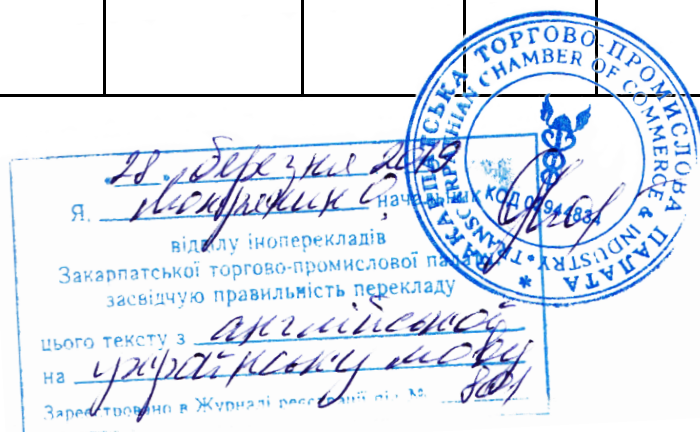 28 березня 2019
Я, начальник
відділу іноперекладів
Закарпатської торгово-промислової палати
засвідчую правильність перекладу
цього тексту з англійської
на українську мову
Зареєстровано в Журналі реєстрації під № 801
ЗАКАРПАТСЬКА ТОРГОВО-ПРОМИСЛОВА ПАЛАТА *
TRANSCARPATHIAN CHAMBER OF COMMERCE & INDUSTRY •
КОД